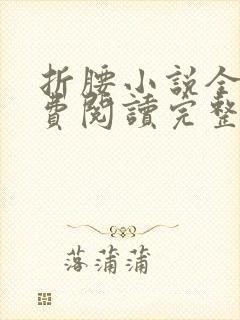 折腰小説全
費閱讀完整
落蒲蒲